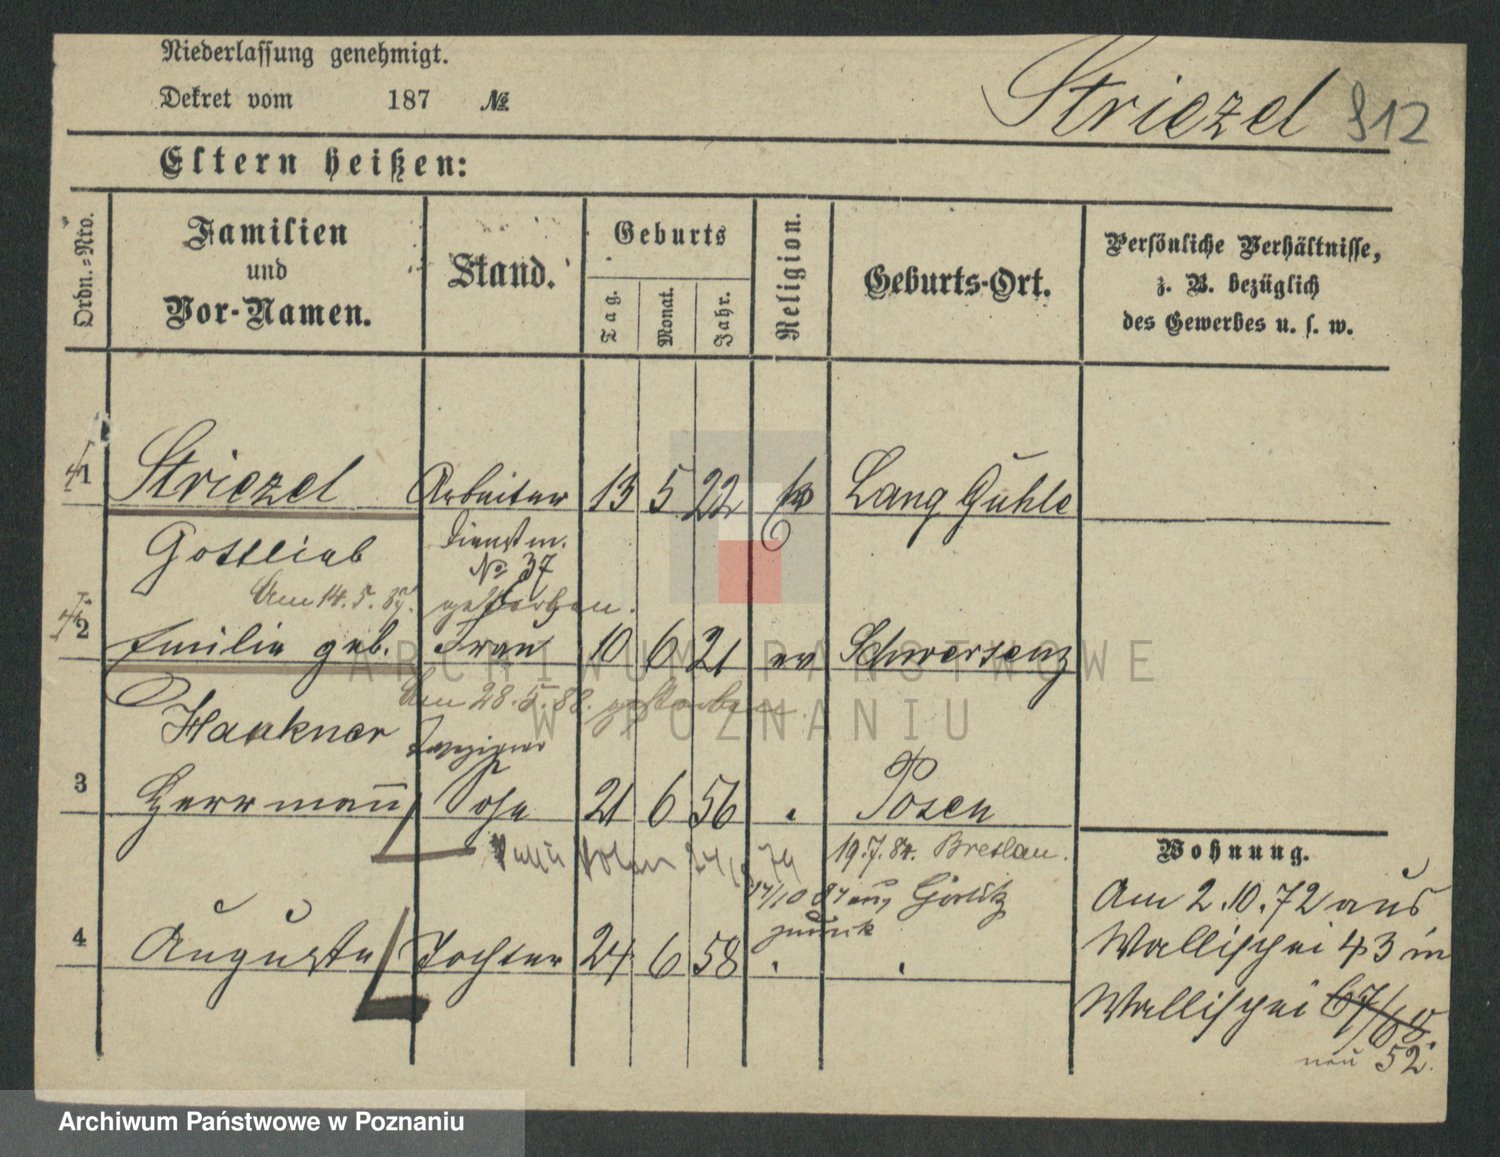 Niederlassung genehmigt.
Dekret vom 187 №
Striezel 912
Eltern heißen:
Ordn.-Nro.
Familien
und
Vor-Namen.
Stand.
Geburts
Tag.
Monat.
Jahr.
Religion.
Geburts-Ort.
Persönliche Verhältnisse,
z. B. bezüglich
des Gewerbes u. s. w.
1 Striezel Arbeiter 13 5 22 Lang Guhle
Gottlieb Dienstm.
№ 37
Am 14. 5. gestorben.
2 Emilie geb. Frau 10 6 21 ev Schwersenz
Am 28. 5. 88. gestorben
Haakner
3 Herrmann Sohn 21 6 56 " Posen
19. 7. 84. Breslau.
17/10 84 aus Görlitz
zurück
4 Auguste Tochter 24 6 58 " "
Wohnung.
Am 2. 10. 72 aus
Wallischei 43 in
Wallischei 67/68
neu 52.
ARCHIWUM PAŃSTWOWE
W POZNANIU
Archiwum Państwowe w Poznaniu